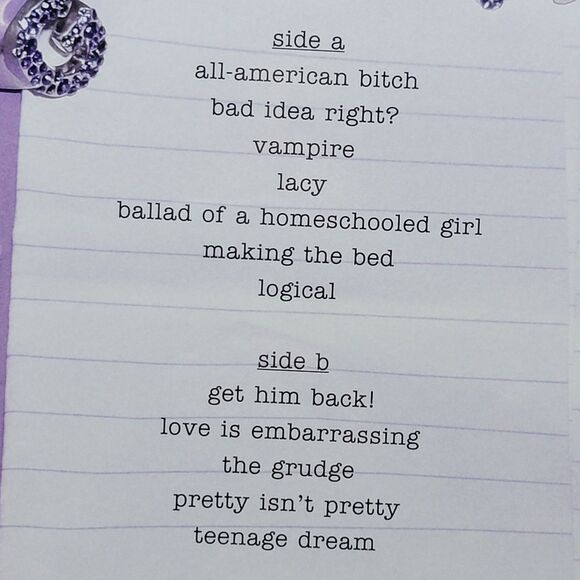 side a
all-american bitch
bad idea right?
vampire
lacy
ballad of a homeschooled girl
making the bed
logical
side b
get him back!
love is embarrassing
the grudge
pretty isn't pretty
teenage dream